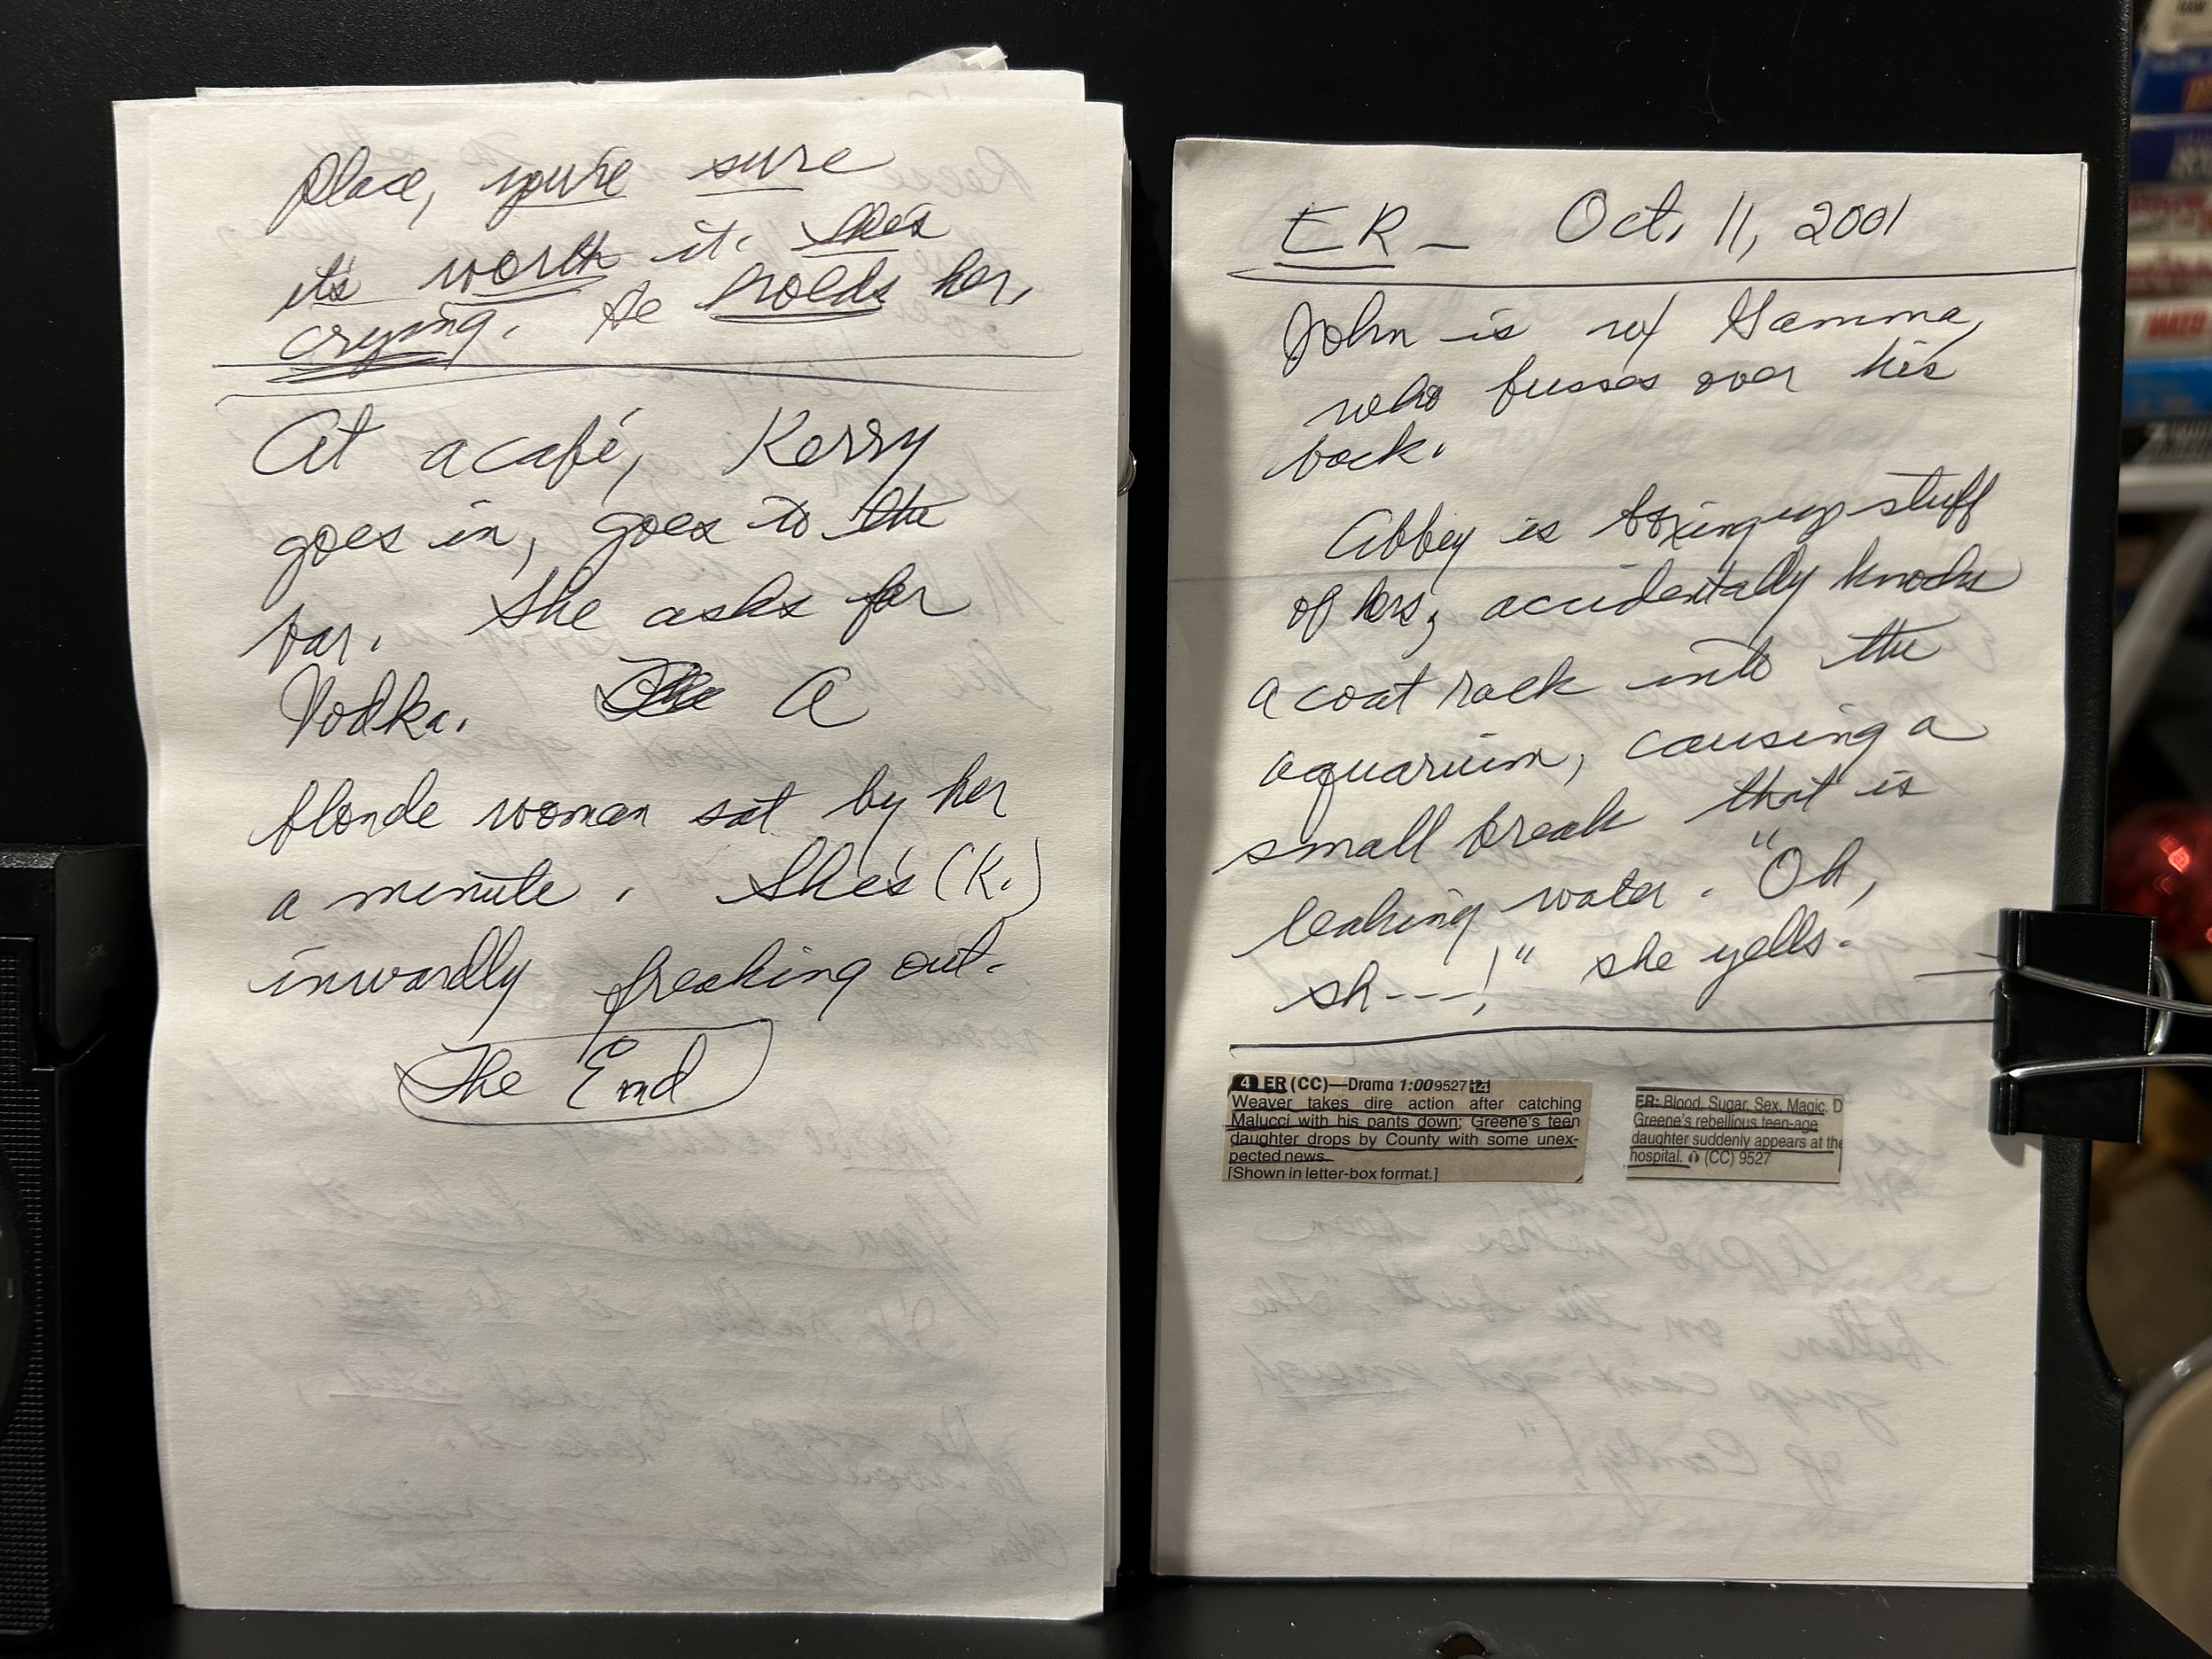 place, you're sure
it's worth it. She's
crying. He holds her.
At a café, Kerry
goes in, goes to the
bar. She asks for
Vodka. A
blonde woman sat by her
a minute. She's (K.)
inwardly freaking out.
The End
ER - Oct. 11, 2001
John is w/ Gamma,
who fusses over his
back.
Abbey is boxing up stuff
of hers, accidentally knocks
a coat rack into the
aquarium, causing a
small break that is
leaking water. "Oh,
sh---!" she yells.
4 ER (CC)—Drama 1:00 9527 14
Weaver takes dire action after catching
Malucci with his pants down; Greene's teen
daughter drops by County with some unex-
pected news.
[Shown in letter-box format.]
ER: Blood, Sugar, Sex, Magic. D
Greene's rebellious teen-age
daughter suddenly appears at the
hospital. (CC) 9527